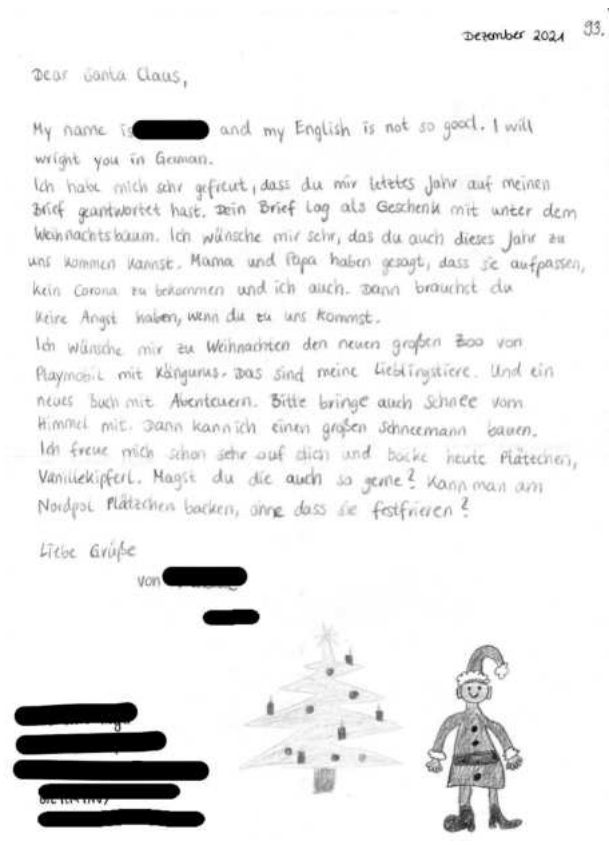 Dezember 2021 93.
Dear Santa Claus,
My name is and my English is not so good. I will
wright you in German.
Ich habe mich sehr gefreut, dass du mir letztes Jahr auf meinen
Brief geantwortet hast. Dein Brief lag als Geschenk mit unter dem
Weihnachtsbaum. Ich wünsche mir sehr, das du auch dieses Jahr zu
uns kommen kannst. Mama und Papa haben gesagt, dass sie aufpassen,
kein Corona zu bekommen und ich auch. Dann brauchst du
keine Angst haben, wenn du zu uns kommst.
Ich wünsche mir zu Weihnachten den neuen großen Zoo von
Playmobil mit Kängurus. Das sind meine Lieblingstiere. Und ein
neues Buch mit Abenteuern. Bitte bringe auch Schnee vom
Himmel mit. Dann kann ich einen großen Schneemann bauen.
Ich freue mich schon sehr auf dich und backe heute Plätzchen,
Vanillekipferl. Magst du die auch so gerne? Kann man am
Nordpol Plätzchen backen, ohne dass sie festfrieren?
Liebe Grüße
von